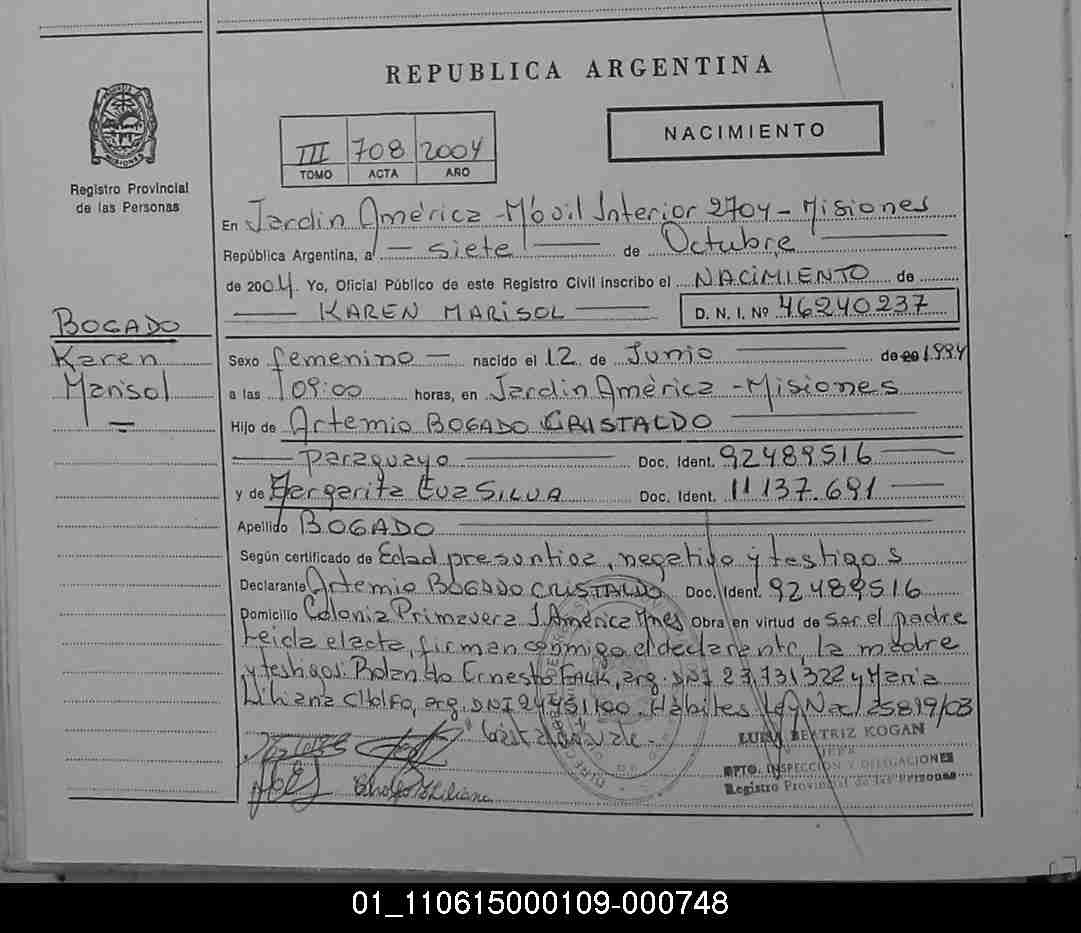 REPUBLICA ARGENTINA
NACIMIENTO
III 708 2004
TOMO ACTA AÑO
Registro Provincial
de las Personas
En Jardin América - Móvil Interior 2704 - Misiones
República Argentina, a — siete — de Octubre
de 2004. Yo, Oficial Público de este Registro Civil inscribo el NACIMIENTO de
KAREN MARISOL D. N. I. Nº 46240237
BOGADO
Karen
Marisol
Sexo femenino — nacido el 12 de Junio de 20 1994
a las 09:00 horas, en Jardin América - Misiones
Hijo de Artemio BOGADO CRISTALDO
Paraguayo Doc. Ident. 92489516
y de Margarita Eva SILVA Doc. Ident. 11137.691
Apellido BOGADO
Según certificado de Edad presuntiva, negativo y testigos
Declarante Artemio BOGADO CRISTALDO Doc. Ident. 92489516
Domicilio Colonia Primavera J. América Mnes Obra en virtud de Ser el padre
Leida el acta, firman conmigo el declarante, la madre
y testigos: Rolando Ernesto FALK, arg. DNI 23.731322 y Maria
Liliana arg. DNI 24451100. Ley Nac 25819/03
LUISA BEATRIZ KOGAN
JEFE
DPTO. INSPECCION Y DELEGACIONES
Registro Provincial de las Personas
01_110615000109-000748